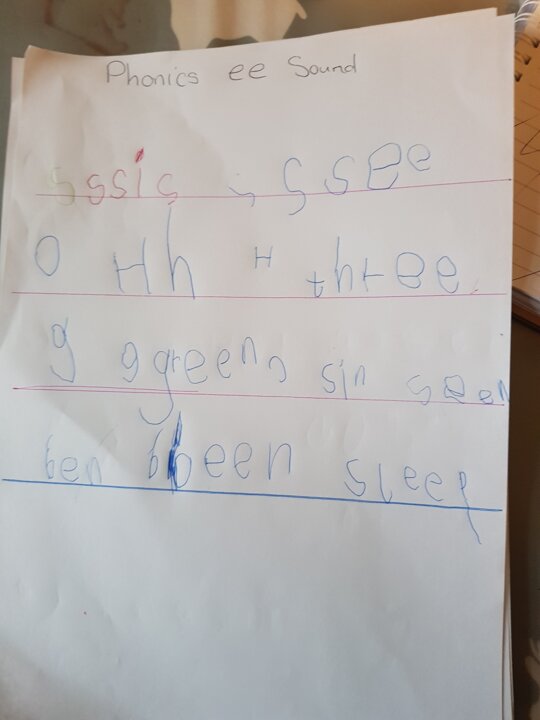 Phonics ee Sound
s s s i s s see
O H h H three
g green sin seen
ben been sleep